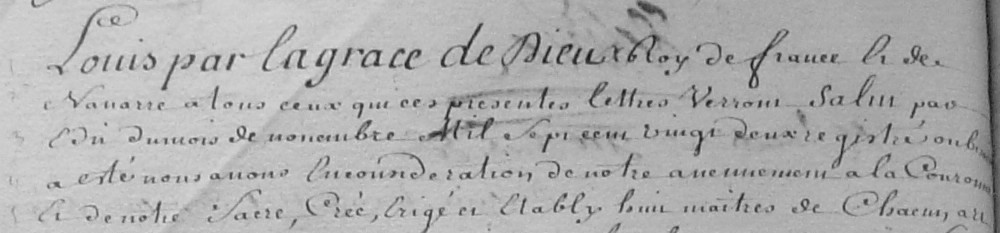 Louis par la grace de Dieu Roy de france Et de
Navarre a tous ceux qui ces presentes lettres Verront Salut par
Edit du mois de novembre Mil Sept cent vingt deux registré ou besoin
a esté nous avons En consideration de notre avennement a la Couronne
Et de notre Sacre, Créé, Erigé et Etably huit maitres de Chacun art